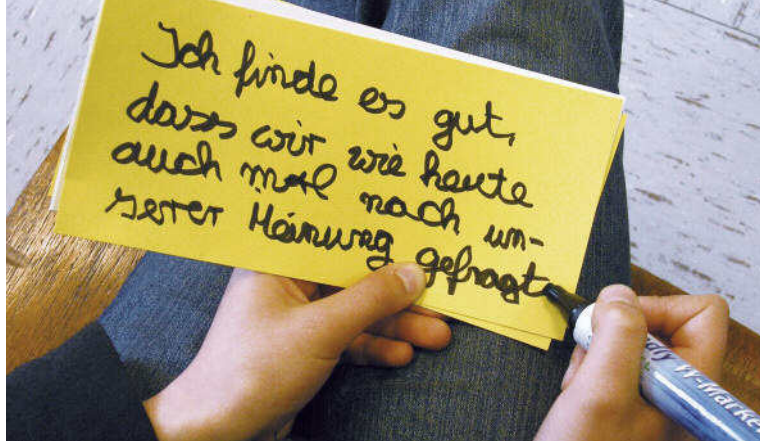 Ich finde es gut,
dass wir wie heute
auch mal nach un-
serer Meinung gefragt
W-Marker